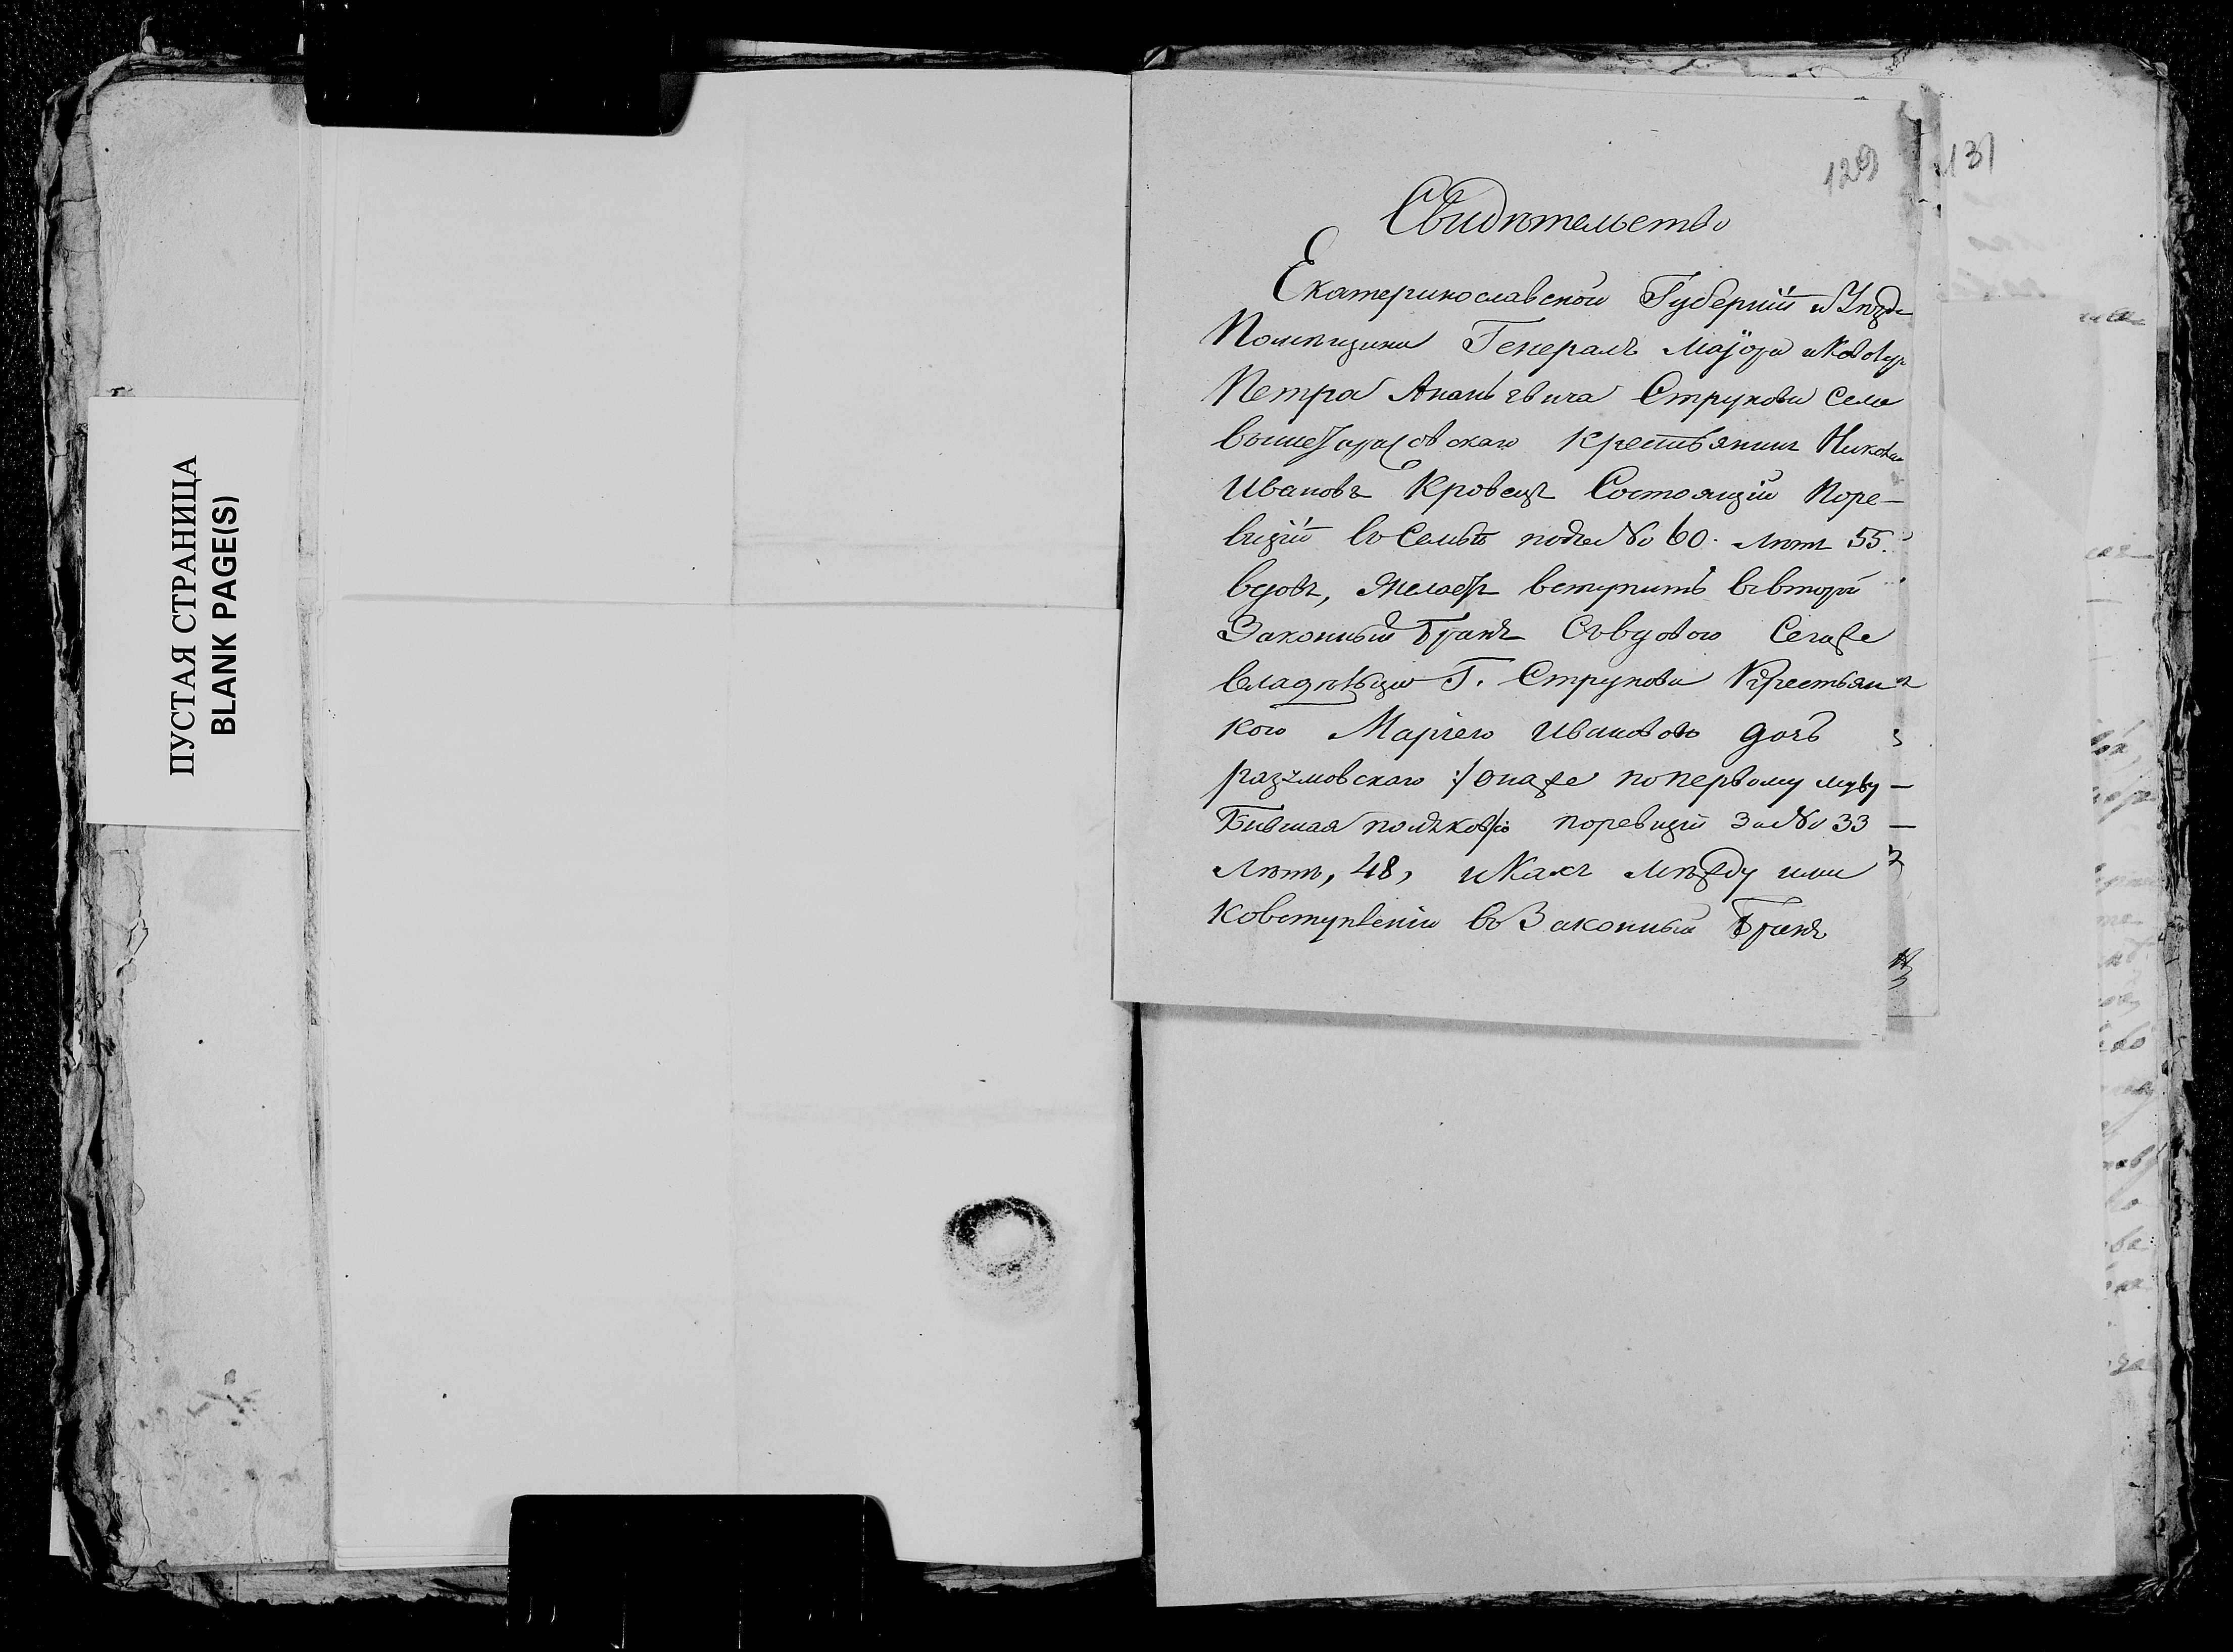 ПУСТАЯ СТРАНИЦА
BLANK PAGE(S)
129
131
Свидѣтельство
Екатеринославской Губерніи и Уѣзда
Помѣщика Генералъ Маіора
Петра Ананьевича Струкова села
крестьянинъ
Ивановъ Кровецъ Состоящій Поре-
визіи въ Семьѣ подъ № 60. лѣтъ 55.
вдовъ, желаетъ вступить въ вторы
Законный Бракъ Съ вдовою Сегоже
владѣльца Г. Струкова Крестьян
кою Маріею Ивановою дочь
разумовскаго :/ онаже по первому мужу
Бывшая поревизіи За № 33
лѣтъ, 48, и Какъ между ими
Ковступленію въ Законный Бракъ